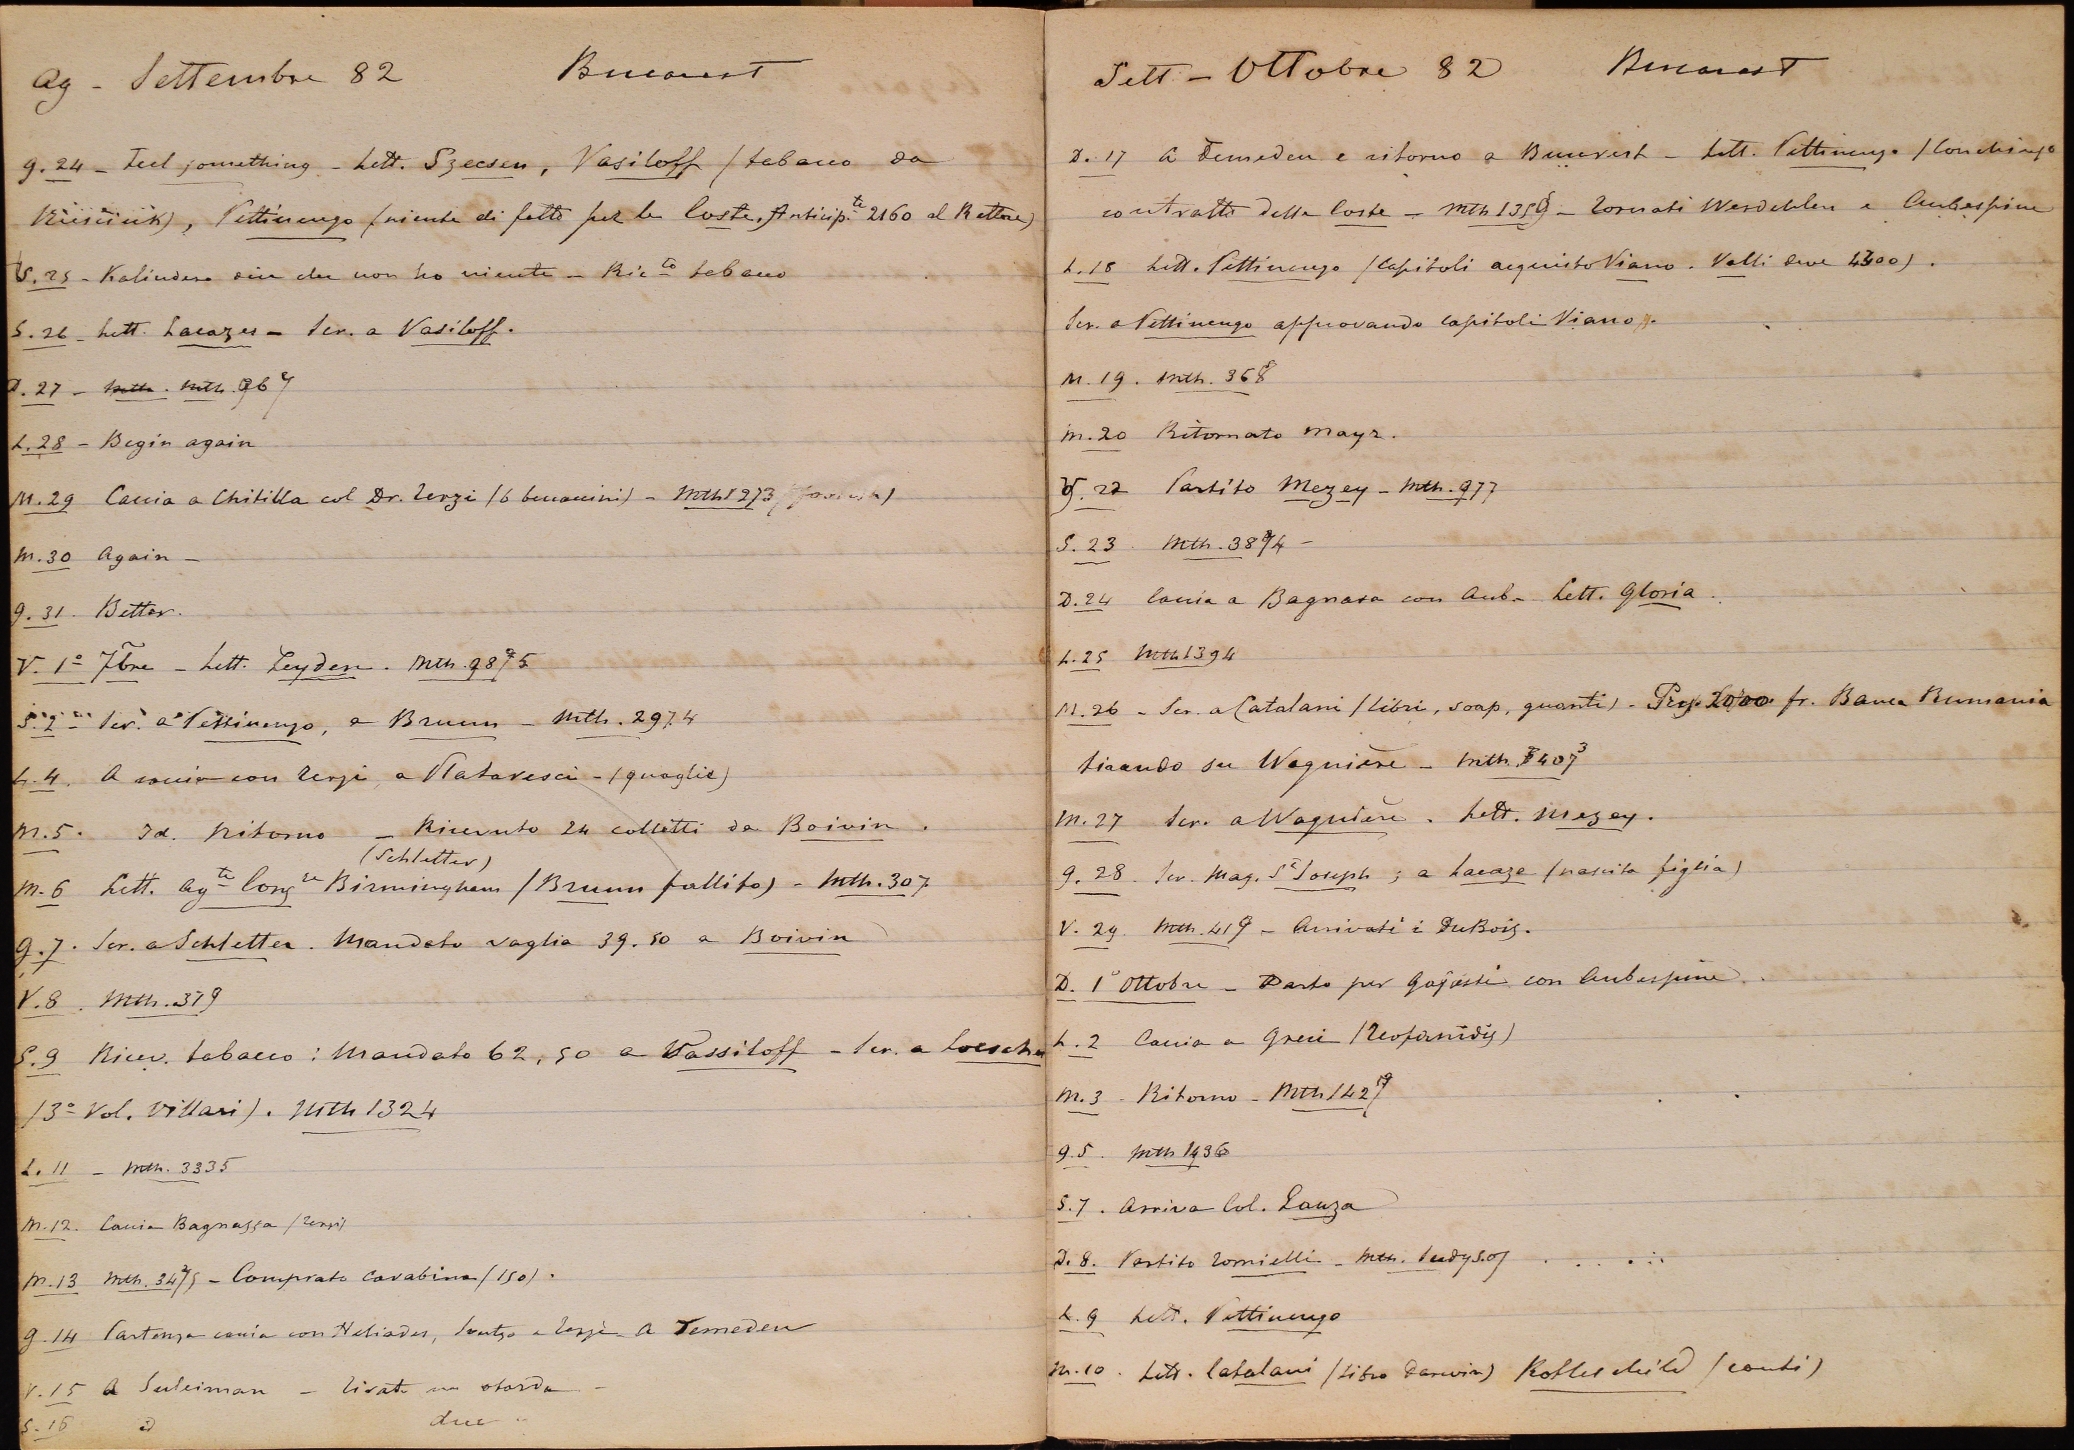 Ag - Settembre 82 Bucarest
g. 24 - Feel something - Lett. Szecsen, Vasiloff (tabacco da
Rusciuk), Pettinengo (niente di fatto per la Coste. Anticip.te 2160 al Rettore)
V. 25 - Kalindero dice che non ho niente - Ric.to tabacco
S. 26 - Lett. Lacazes - Scr. a Vasiloff.
D. 27 - Mth.
L. 28 - Begin again
M. 29 Caccia a Chitilla col Dr. Zerzi (6 beccaccini) - Mth 1273
M. 30 Again -
g. 31. Better.
V. 1° 7bre - Lett. Leyden. Mth.
S. 2 - Scr. a Pettinengo, a Bruun - Mth. 2974
L. 4. A caccia con Zerzi a Plataresci - (quaglie)
M. 5. Id. Ritorno - Ricevuto 24 colletti da Boivin.
(Schletter)
M. 6 Lett. Ag.te Cons.re Birmingham (Bruun fallito) - Mth. 307
g. 7. Scr. a Schletter. Mandato vaglia 39.50 a Boivin
V. 8. Mth. 319
S. 9 Ricev. tabacco: Mandato 62,50 a Vassiloff - Scr. a Loescher
(3° Vol. Villari). Mth 1324
L. 11 - Mth. 3335
M. 12. Caccia Bagnassa (Zerzi)
M. 13 Mth. - Comprato carabina (150).
g. 14 Partenza caccia con Heliades, Soutzo e Zerzi - A Temeden
V. 15 A Suleiman - Tirate una otarda -
S. 16 id due
Sett - Ottobre 82 Bucarest
D. 17 A Temeden e ritorno a Bucarest - Lett. Pettinengo (Conchiuso
contratto della Coste - Mth 1359 - Tornati Werdehlen e Aubespine
L. 18 Lett. Pettinengo (Capitoli acquisto Viano. Valli deve 4300).
Scr. a Pettinengo approvando capitoli Viano.
M. 19. Mth. 368
M. 20 Ritornato Mayr.
V. 22 Partito Mezey - Mth.
S. 23 Mth. -
D. 24 Caccia a Bagnasa con Aub - Lett. Gloria.
L. 25 Mth 1394
M. 26 - Scr. a Catalani (libri, soap, guanti) - 2000 fr. Banca Rumania
tirando su Wagnière - Mth.
M. 27 Scr. a Wagnière. Lett. Mezey.
g. 28. Scr. Mag. St Joseph; a Lacaze (nascita figlia)
V. 29. Mth. 419 - Arrivati i DuBois.
D. 1° Ottobre - Parto per Gajesti con Aubespine.
L. 2 Caccia a Greci
M. 3 - Ritorno - Mth
g. 5. Mth 1436
S. 7. Arriva Col. Lanza
D. 8. Partito Tornielli - Mth.
L. 9 Lett. Pettinengo
M. 10. Lett. Catalani (Libro Darwin) Rothschild (conti)